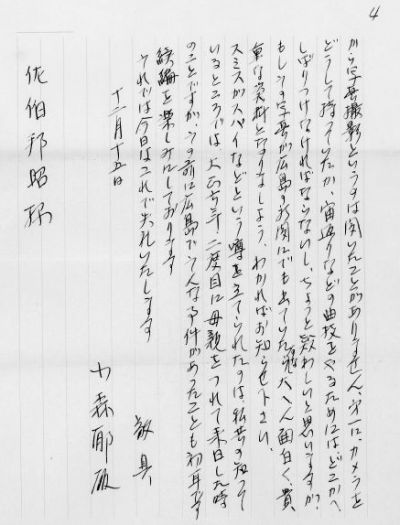 4
から写真撮影というのは聞いたことがありません、第一に、カメラを
どうして持っていたか、宙返りなどの曲技をやるためにはどこかへ
しばりつけなければならないし、ちょっと疑わしいと思いますが、
もしその写真が広島の新聞にでも出ていたら大へん面白く、貴
重な資料となりましょう、わかればお知らせ下さい。
スミスがスパイなどという噂を立てられたのは私共の知って
いるところでは 大正 二度目に母親をつれて来日した時
のことですが、その前に広島でそんな事件があったことも初耳です
続編を楽しみにしております
それでは今日はこれで失礼いたします
敬具
十二月十五日
小森郁雄
佐伯邦昭様